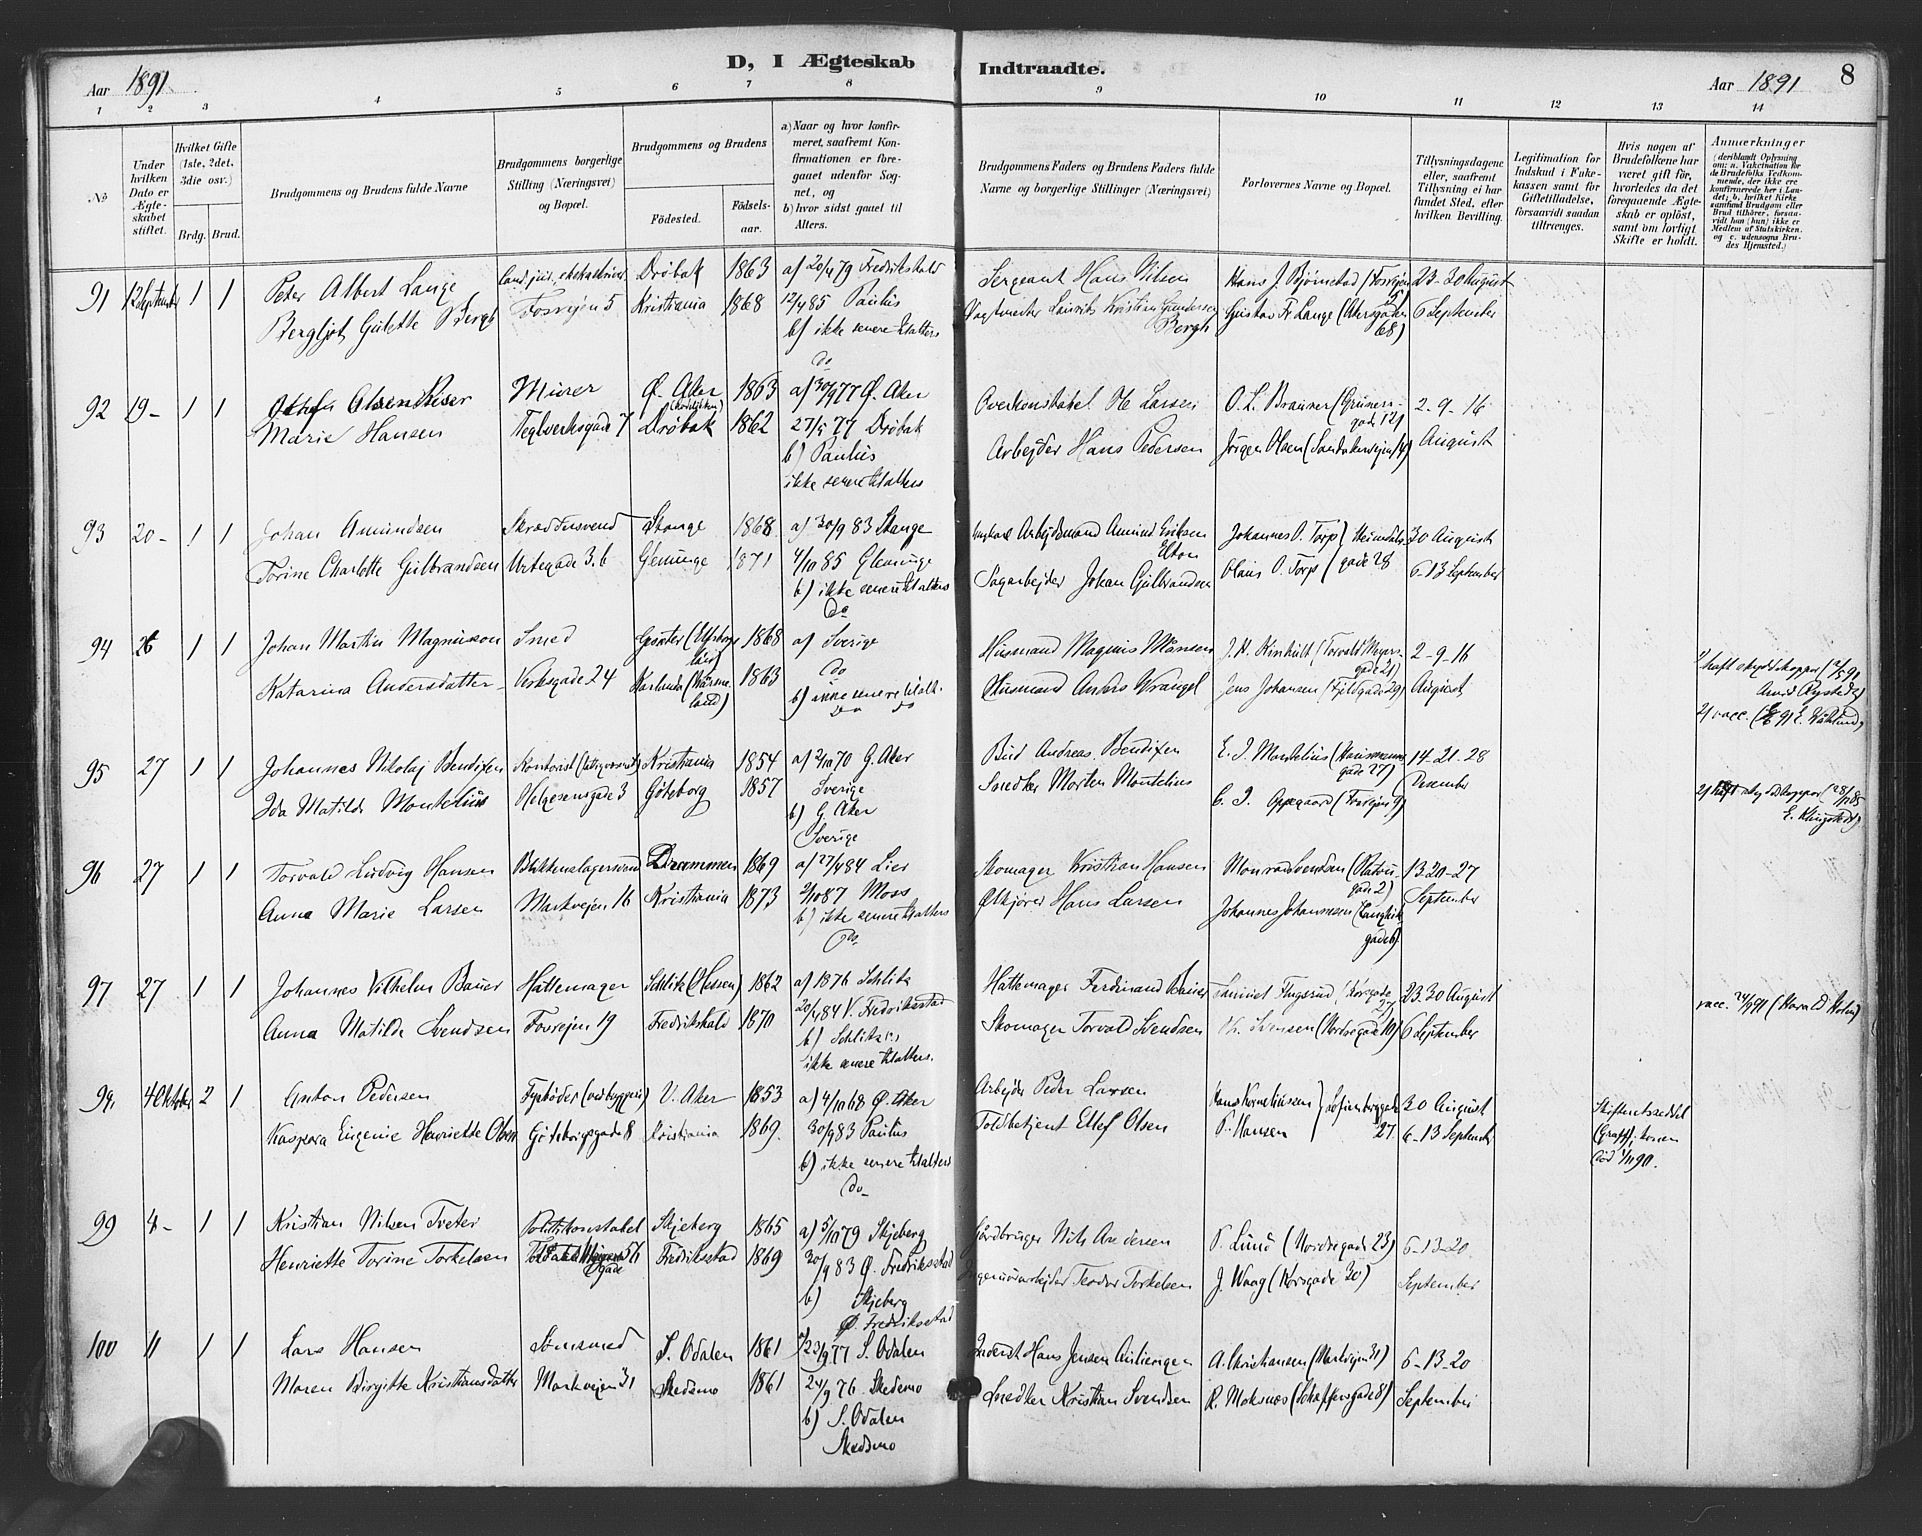 Aar 1891
D, I Ægteskab Indtraadte.
Aar 1891
8
1 2 3 4 5 6 7 8 9 10 11 12 13 14
No.
Under hvilken Dato er Ægteskabet stiftet.
Hvilket Gifte (1ste, 2det, 3die osv.)
Brdg. Brud.
Brudgommens og Brudens fulde Navne
Brudgommens borgerlige Stilling (Næringsvei) og Bopæl.
Brudgommens og Brudens
Födested. Födsels-aar.
a) Naar og hvor konfirmeret, saafremt Konfirmationen er foregaaet udenfor Sognet, og
b) hvor sidst gaaet til Alters.
Brudgommens Faders og Brudens Faders fulde Navne og borgerlige Stillinger (Næringsvei)
Forlovernes Navne og Bopæl.
Tillysningsdagene eller, saafremt Tillysning ei har fundet Sted, efter hvilken Bevilling.
Legitimation for Indskud i Enkekassen samt for Giftetilladelse, forsaavidt saadan tiltrænges.
Hvis nogen af Brudefolkene har været gift før, hvorledes da det foregaaende Ægteskab er opløst, samt om lovligt Skifte er holdt.
Anmærkninger
(deriblandt Oplysning om: a. Vaksination for Brudefolks Vedkommende, der ikke ere konfirmerede her i Landet; b. hvilket Kirkesamfund Brudgom eller Brud tilhører, forsaavidt han (hun) ikke er Medlem af Statskirken, og c. udensogns Brudes Hjemsted.)
91 12 September 1 1 Peter Albert Lange Drøbak 1863 a) 20/4 79 Fredrikshald Sergeant Hans Nilsen Hans J. Bjørnstad (Fossvejen 5) 23-30 August
Bergljot Gulette Bergh Fossvejen 5 Kristiania 1868 12/4 85 Paulus Bergh Gustav Fr Lange (Akersgaden 68) 6 September
b) ikke senere til alters
do
92 19- 1 1 Olsen Murer Ø. Aker 1863 a) 30/9 77 Ø. Aker Overkonstabel Ole Larsen O. L. Brauner (Grünersgade 12) 2-9-16
Marie Hansen Teglverksgade 7 Drøbak 1862 27/5 77 Drøbak Arbejder Hans Pedersen Jørgen Olsen (Sandakerveien 14) August
b) Paulus
ikke senere til alters
93 20- 1 1 Johan Amundsen Skræddersvend Stange 1868 a) 30/9 83 Stange Arbejdsmand Amund Eriksen Elton Johannes O. Torp (Heimdalsgade 28 30 August
Torine Charlotte Gulbrandsen Urtegade 3.b Glemmige 1871 4/10 85 Glemmige Sagarbejder Johan Gulbrandsen Olaus O. Torp 6-13 September
b) ikke senere til alters
Do
94 26 1 1 Johan Martin Magnusson Smed 1868 a) Sverige Husmand Magnus Månsen J. H. Kinhult (Torvald Meyersgade 21) 2-9-16
Katarina Andersdatter Verksgade 24 Karlanda (Värmland) 1863 do Husmand Anders Wrangel Jens Johansen (Fjeldgade 29) August
b) ikke senere til alt.
95 27 1 1 Johannes Nikolaj Bendixen Kontorist Kristiania 1854 a) 2/10 70 G. Aker Bud Andreas Bendixen E. I. Montelius (Hausmannsgade 27) 14-21-28
Ida Matilde Montelius Helgesensgade 3 Göteborg 1857 Sverige Snedker Morten Montelius C. I. Oppegaard (Fossvejen 9)
b) G. Aker
Sverige
96 27 1 1 Torvald Ludvig Hansen Blikkenslagersvend Drammen 1869 a) 27/4 84 Lier Skomager Kristian Hansen Monrad Svendsen (Olavsgade 2) 13-20-27
Anna Marie Larsen Markvejen 16 Kristiania 1873 2/10 87 Moss Ølkjører Hans Larsen Johannes Johannesen (Langlikgade 6) September
b) ikke senere til alters
Do
97 27 1 1 Johannes Vilhelm Bauer Hattemager Schlitz (Hessen) 1862 a) 1876 Schlitz Hattemager Ferdinand Bauer 23.30 August
Anna Matilde Svendsen Fossvejen 19 Fredrikshald 1870 20/4 84 V. Fredriksstad Skomager Torvald Svendsen (Nordregade 10) 6 September
b) Schlitz
ikke senere til alters.
vacc. 24/9 91
99. 4 Oktober 2 1 Anton Pedersen Fyrbøder V. Aker 1853 a) 4/10 68 Ø. Aker Arbejder Peder Larsen Hans Kornelinssen 30 August
Kaspara Eugenie Henriette Olsen Göteborgsgade 8 Kristiania 1869. 30/9 83 Paulus Toldbetjent Ellef Olsen P. Hansen Sofienberggade 27 6-13 September
b) ikke senere til alters
Do
Skifteattest konen død 1/11 90.
99 4- 1 1 Kristian Nilsen Tveter Politikonstabel Skjeberg 1865 a) 5/10 79 Skjeberg Gårdbruger Nils Andersen P. Lund (Nordregade 23) 6-13-20
Henriette Torine Torkelsen Fredriksstad 1869 30/9 83 Ø. Fredriksstad Teodor Torkelsen J. Waag (Korsgade 30) September
b) Skjeberg
Ø. Fredriksstad
100 11 1 1 Lars Hansen Sømsmed S. Odalen 1861 a) 23/9 77 S. Odalen Inderst Hans Jensen A. Kristiansen (Markvejen 31) 6-13-20
Maren Birgitte Kristiansdatter Markvejen 31 Skedsmo 1861 24/9 76 Skedsmo Snedker Kristian Svendsen R. Moksnes (Schaffersgade 8) September
b) S. Odalen
Skedsmo